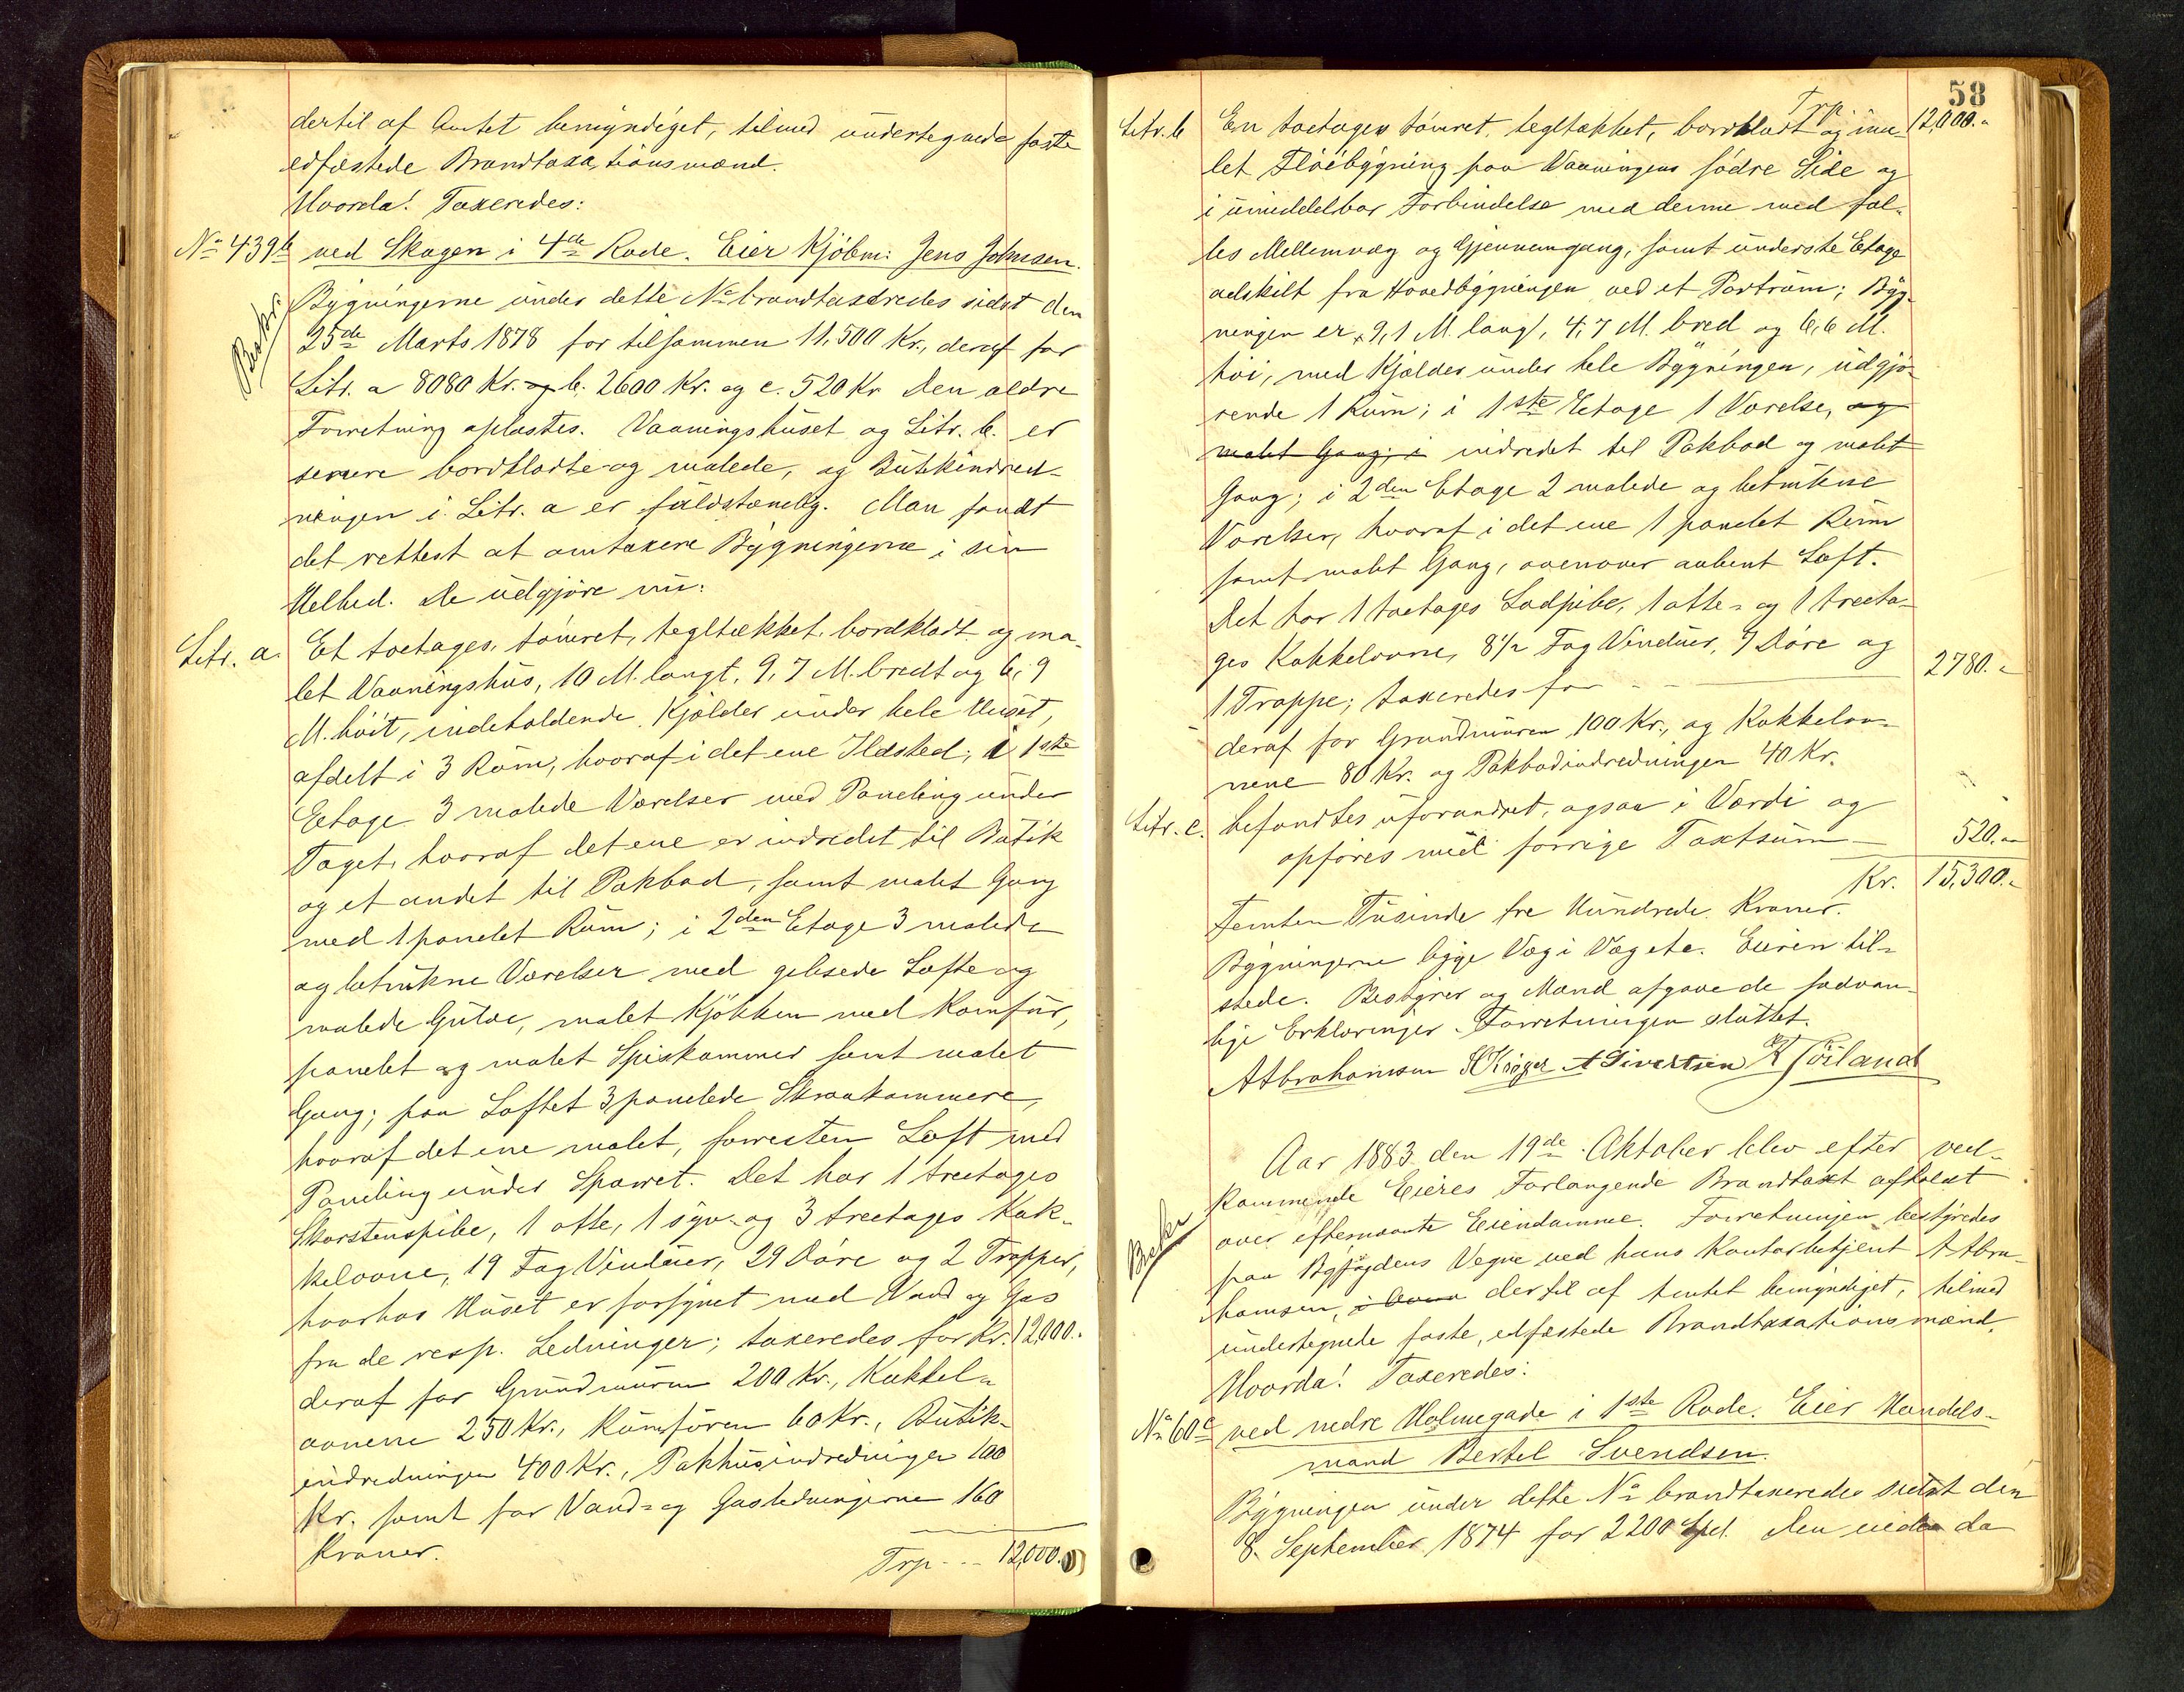 dertil af Amtet bemyndiget, tilmed undertegnede faste
edfæstede Brandtaxationsmænd.
Hvorda! Taxeredes:
No 439b ved Skagen i 4de Rode. Eier Kjøbm: Jens Johnsen.
Bekr.
Bygningerne under dette No brandtaxeredes sidst den
25de Marts 1878 for tilsammen 11,500 Kr., deraf for
Litr. a 8080 Kr. og b. 2600 Kr. og c. 520 Kr. Den ældre
Forretning oplæstes. Vaaningshuset og Litr. b. er
senere bordklædte og malede, og Butikindred-
ningen i Litr. a er fuldstændig. Man fandt
det rettest at omtaxere Bygningerne i sin
Helhed. De udgjøre nu:
Litr. a. Et toetages, tømret, tegltækket, bordklædt og ma-
let Vaaningshus, 10 M. langt, 9,7 M. bredt og 6,9
M. høit, indeholdende Kjælder under hele Huset,
afdelt i 3 Rum, hvoraf i det ene Ildsted; i 1ste
Etage 3 malede Værelser med Paneling under
Taget, hvoraf det ene er indredet til Butik
og et andet til Pakbod, samt malet Gang
med 1 panelet Rum; i 2den Etage 3 malede
og betrukne Værelser med gibsede Lofte og
malede Gulve, malet Kjøkken med Komfur,
panelet og malet Spiskammer samt malet
Gang; paa Loftet 3 panelede Skraakammere,
hvoraf det ene malet, forresten Loft med
Paneling under Sparret. Det har 1 treetages
Skorstenspibe, 1 otte, 1 syv- og 3 treetages Kak-
kelovne, 19 Fag Vinduer, 29 Døre og 2 Trapper,
hvorhos Huset er forsynet med Vand og Gas
fra de resp. Ledninger; taxeredes for Kr. 12,000.
deraf for Grundmuren 200 Kr., Kakkel-
ovnene 250 Kr., Komfuren 60 Kr., Butik-
indredningen 400 Kr., Pakhusindredningen 100
Kr. samt for Vand- og Gasledningerne 160
Kroner.
Trp. - - 12,000.
58
Trp. 12,000.
Litr. b En toetages tømret, tegltækket, bordklædt og ma-
let Fløibygning paa Vaaningens søndre Side og
i umiddelbar Forbindelse med denne med fæl-
les Mellemvæg og Gjennemgang, samt underste Etage
adskilt fra Hovedbygningen ved et Portrum; Byg-
ningen er 9,1 M. lang, 4,7 M. bred og 6,6 M.
høi, med Kjælder under hele Bygningen, udgjø-
rende 1 Rum; i 1ste Etage 1 Værelse, og
malet Gang; i indredet til Pakbod og malet
Gang; i 2den Etage 2 malede og betrukne
Værelser, hvoraf i det ene 1 panelet Rum
samt malet Gang, ovenover aabent Loft.
Det har 1 toetages Lodpibe, 1 otte- og 1 treeta-
ges Kakkelovne, 8 1/2 Fag Vinduer, 7 Døre og
1 Trappe; taxeredes for - - 2780.
deraf for Grundmuren 100 Kr., og Kakkelov-
nene 80 Kr. og Pakbodindredningen 40 Kr.
Litr. c. befandtes uforandret, ogsaa i Værdi og
opføres med forrige Taxtsum — 520.
Kr. 15,300.
Femten Tusinde tre Hundrede Kroner.
Bygningerne ligge Væg i Væg etc. Eieren til-
stede. Bestyrer og Mænd afgave de sædvan-
lige Erklæringer. Forretningen sluttet.
A Abrahamsen H Krøger A Sivertsen Tøiland
Aar 1883 den 19de Oktober blev efter ved-
kommende Eieres Forlangende Brandtaxt afholdt
over efternævnte Eiendomme. Forretningen bestyredes
Bekr
paa Byfogdens Vegne ved hans Kontorbetjent A Abra-
hamsen, dertil af Amtet bemyndiget, tilmed
undertegnede faste, edfæstede Brandtaxationsmænd.
Hvorda! Taxeredes:
No 60c ved nedre Holmegade i 1ste Rode. Eier Handels-
mand Bertel Svendsen.
Bygningen under dette No brandtaxeredes sidst den
8. September 1874 for 2200 Spd. Den under da